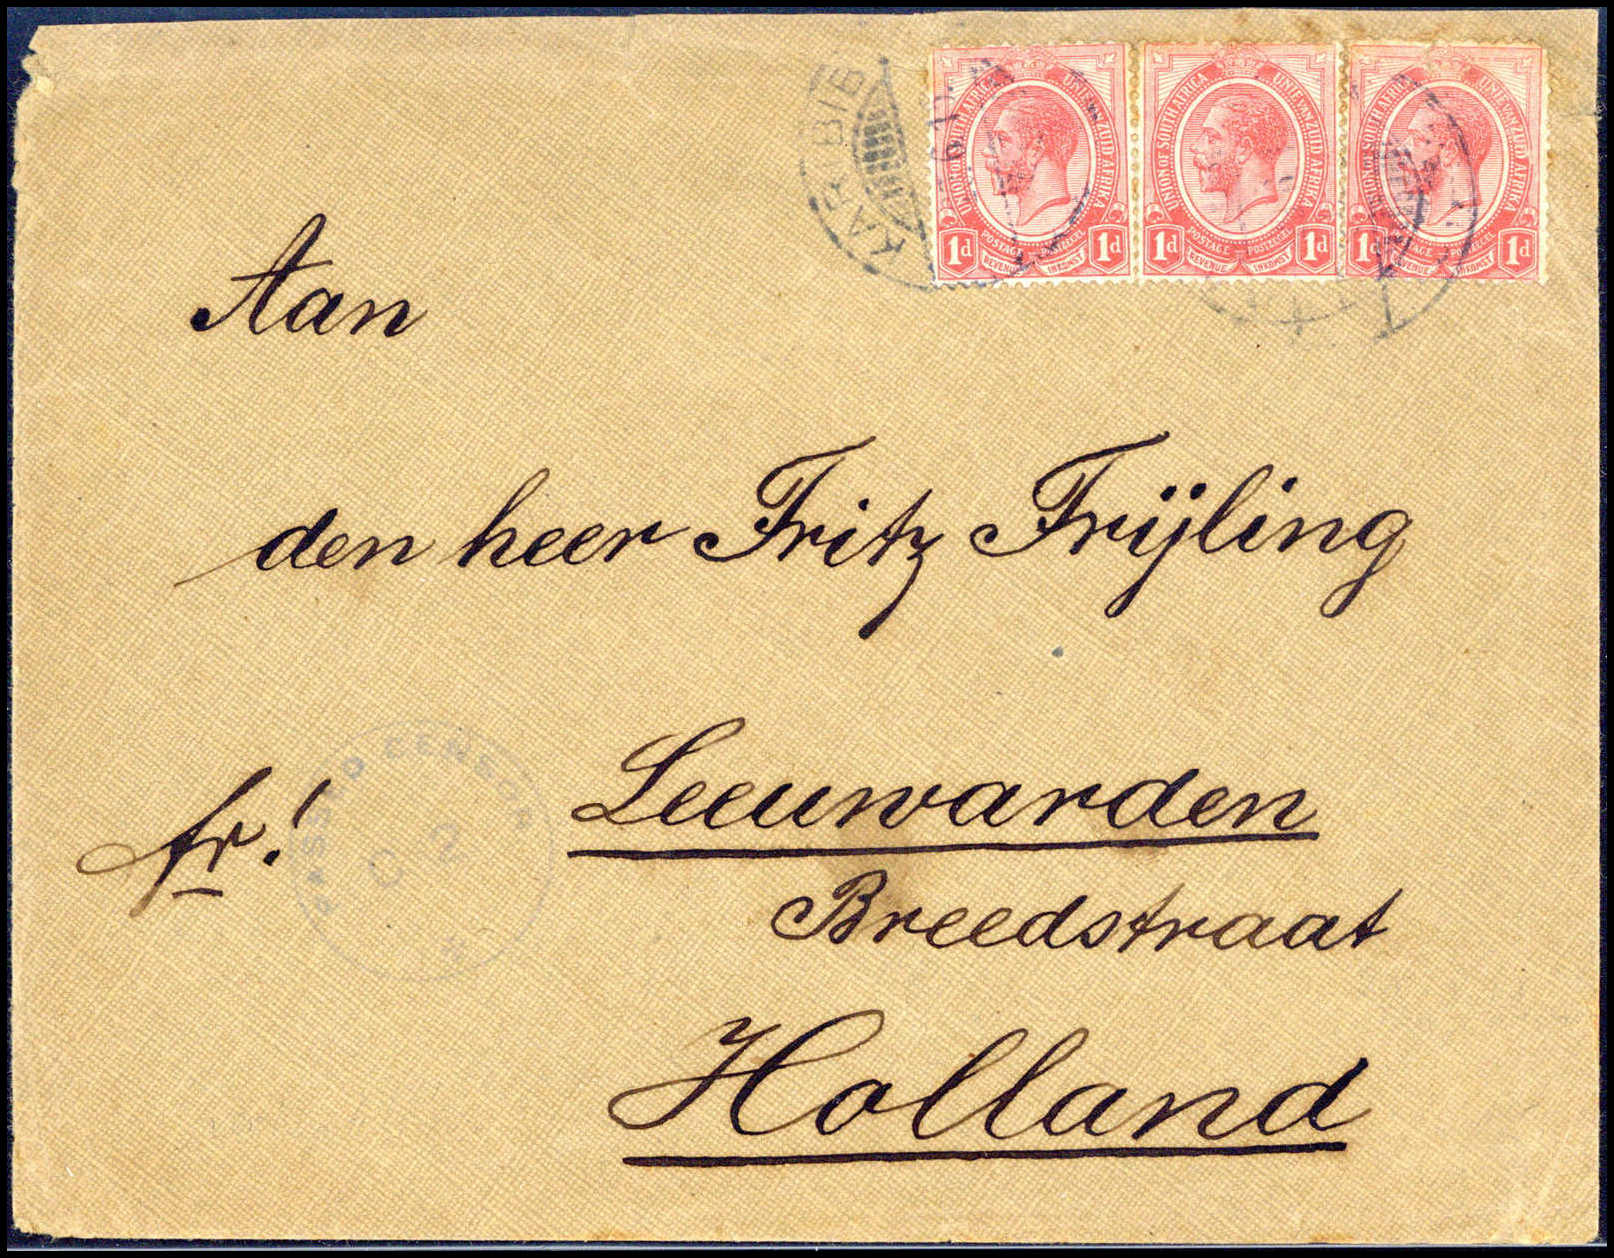 KARIBIB
UNION OF SOUTH AFRICA UNIE VAN ZUID AFRIKA
POSTAGE POSTZEGEL
1d REVENUE INKOMST 1d
UNION OF SOUTH AFRICA UNIE VAN ZUID AFRIKA
POSTAGE POSTZEGEL
1d REVENUE INKOMST 1d
UNION OF SOUTH AFRICA UNIE VAN ZUID AFRIKA
POSTAGE POSTZEGEL
1d REVENUE INKOMST 1d
Aan
den heer Fritz Frijling
fr!
PASSED CENSOR
C 2
Leeuwarden
Breedstraat
Holland